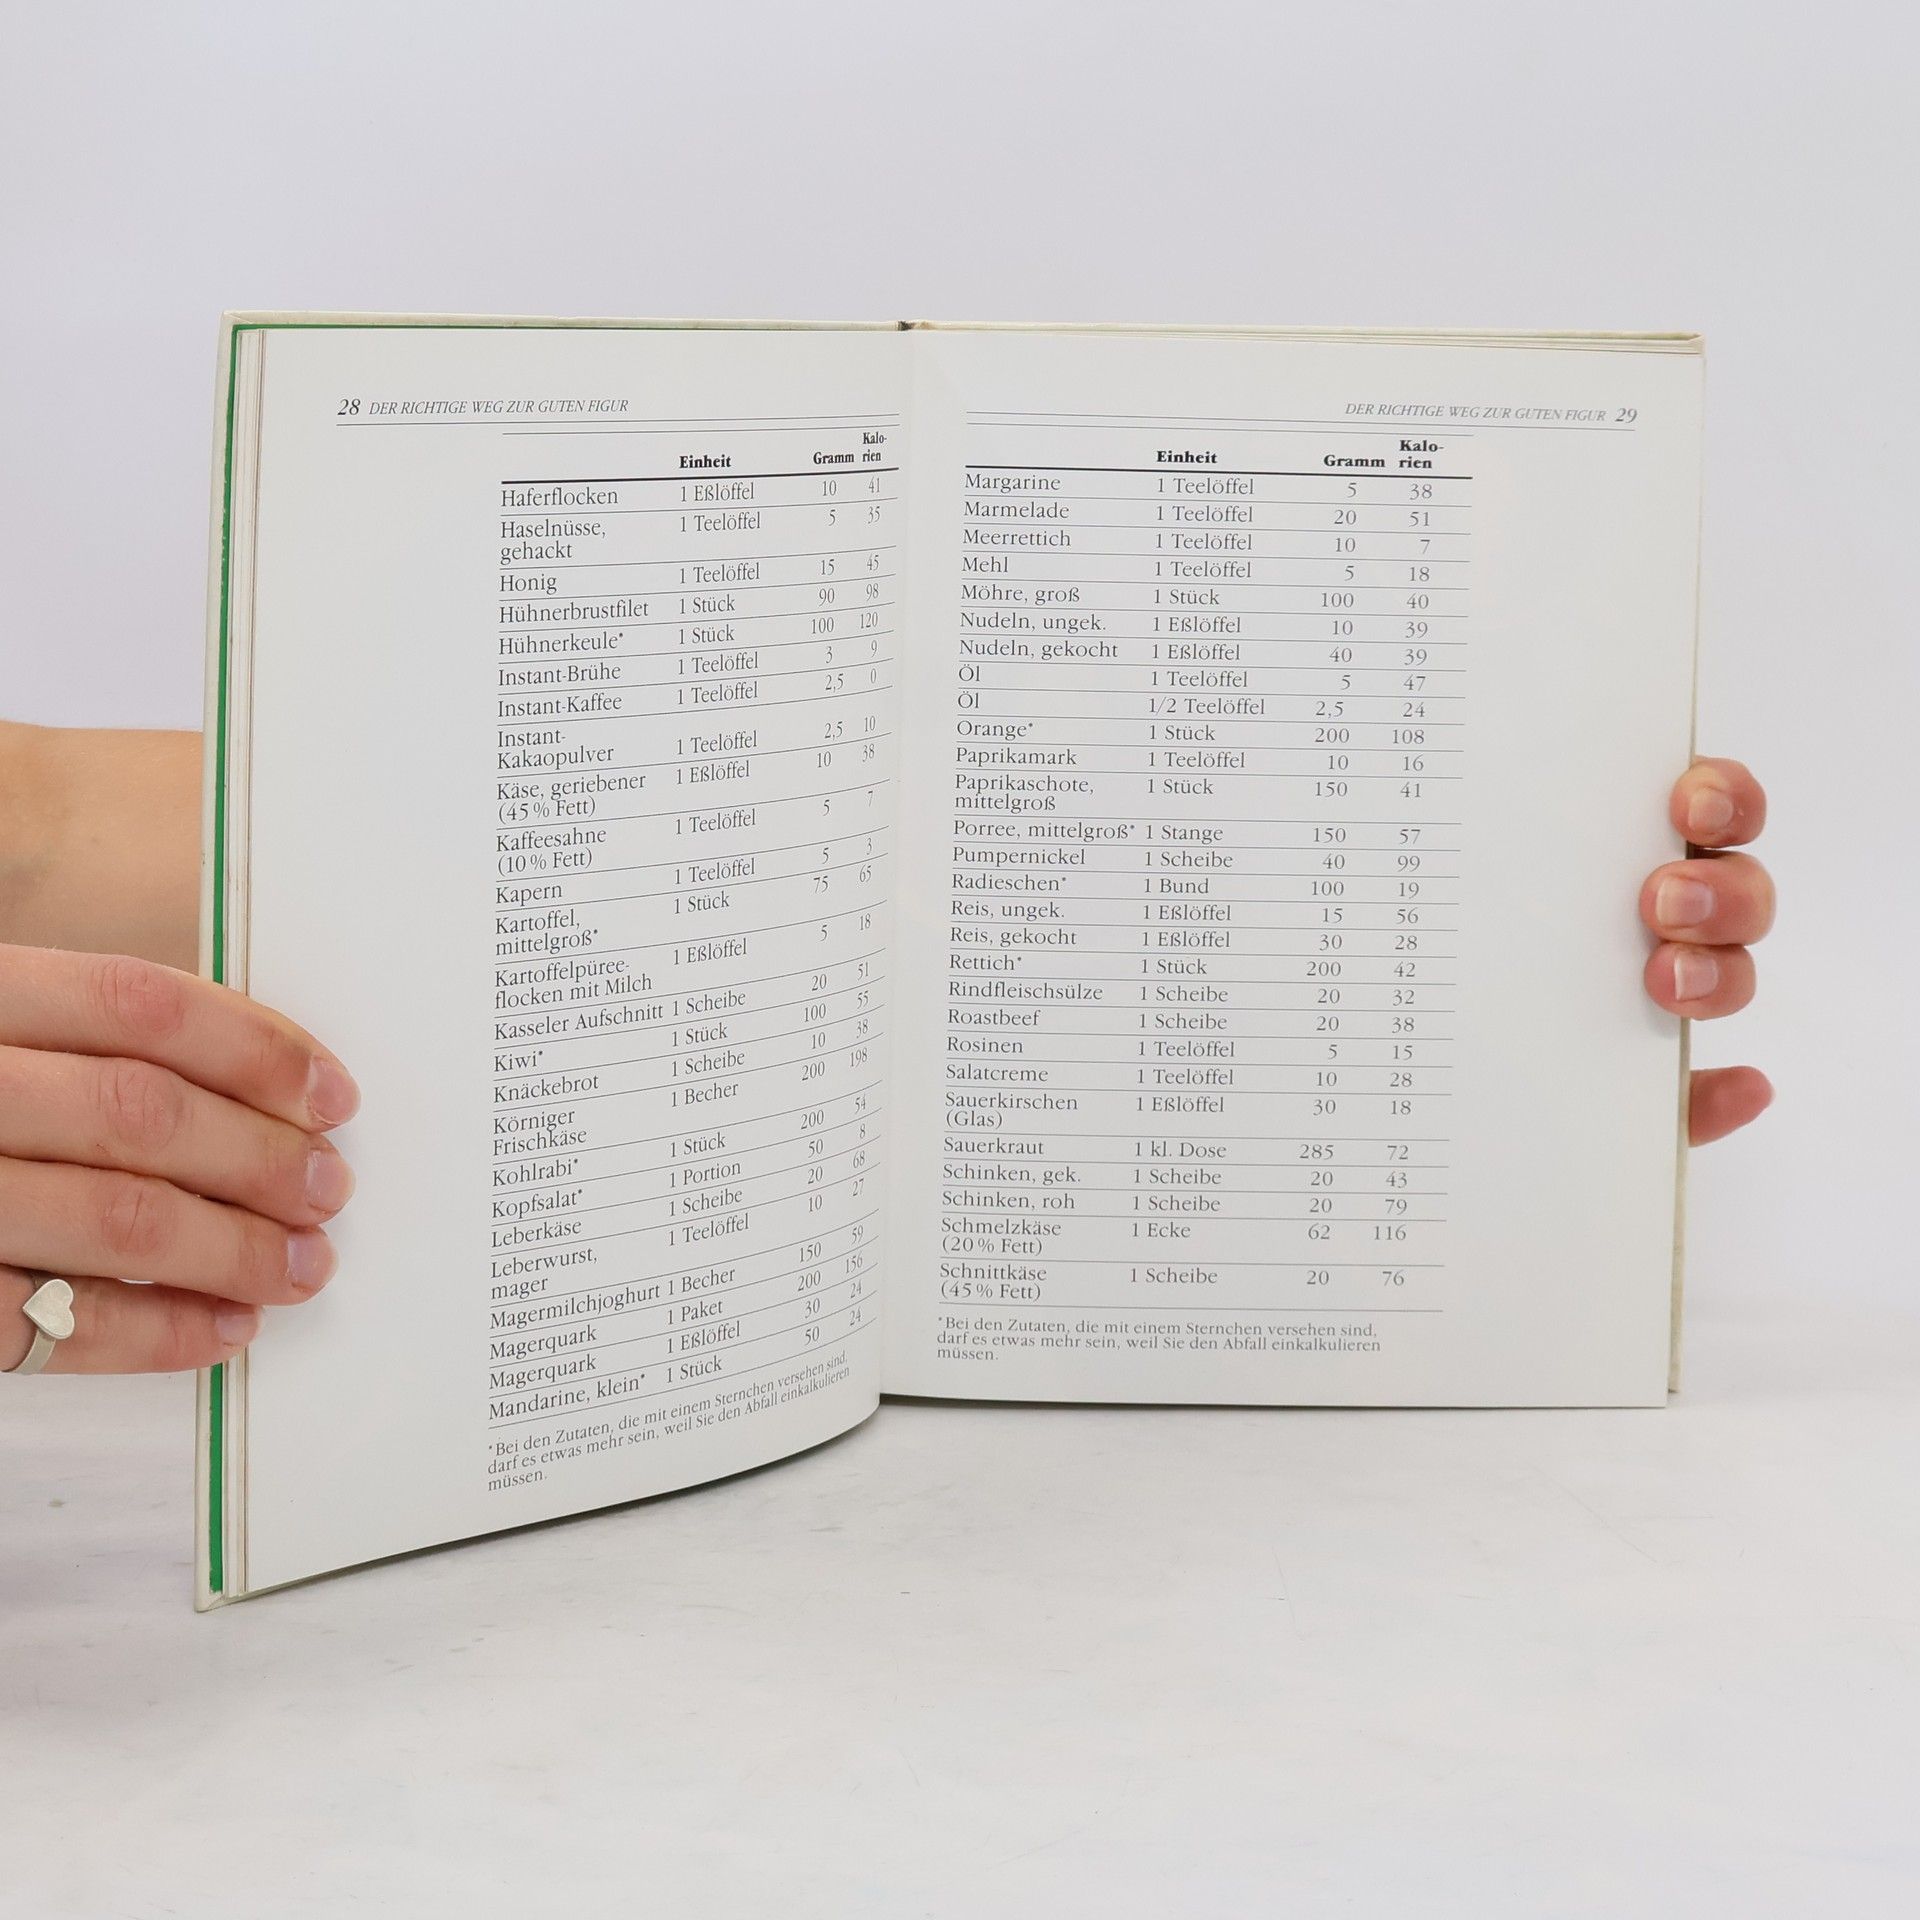 28 DER RICHTIGE WEG ZUR GUTEN FIGUR
Einheit Gramm Kalo-
rien
Haferflocken 1 Eßlöffel 10 41
Haselnüsse, 1 Teelöffel 5 35
gehackt
Honig 1 Teelöffel 15 45
Hühnerbrustfilet 1 Stück 90 98
Hühnerkeule* 1 Stück 100 120
Instant-Brühe 1 Teelöffel 3 9
Instant-Kaffee 1 Teelöffel 2,5 0
Instant-
Kakaopulver 1 Teelöffel 2,5 10
Käse, geriebener 1 Eßlöffel 10 38
(45 % Fett)
Kaffeesahne 1 Teelöffel 5 7
(10 % Fett)
Kapern 1 Teelöffel 5 3
Kartoffel, 1 Stück 75 65
mittelgroß*
Kartoffelpüree- 1 Eßlöffel 5 18
flocken mit Milch
Kasseler Aufschnitt 1 Scheibe 20 51
Kiwi* 1 Stück 100 55
Knäckebrot 1 Scheibe 10 38
Körniger 1 Becher 200 198
Frischkäse
Kohlrabi* 1 Stück 200 54
Kopfsalat* 1 Portion 50 8
Leberkäse 1 Scheibe 20 68
Leberwurst, 1 Teelöffel 10 27
mager
Magermilchjoghurt 1 Becher 150 59
Magerquark 1 Paket 200 156
Magerquark 1 Eßlöffel 30 24
Mandarine, klein* 1 Stück 50 24
*Bei den Zutaten, die mit einem Sternchen versehen sind,
darf es etwas mehr sein, weil Sie den Abfall einkalkulieren
müssen.
DER RICHTIGE WEG ZUR GUTEN FIGUR 29
Einheit Gramm Kalo-
rien
Margarine 1 Teelöffel 5 38
Marmelade 1 Teelöffel 20 51
Meerrettich 1 Teelöffel 10 7
Mehl 1 Teelöffel 5 18
Möhre, groß 1 Stück 100 40
Nudeln, ungek. 1 Eßlöffel 10 39
Nudeln, gekocht 1 Eßlöffel 40 39
Öl 1 Teelöffel 5 47
Öl 1/2 Teelöffel 2,5 24
Orange* 1 Stück 200 108
Paprikamark 1 Teelöffel 10 16
Paprikaschote, 1 Stück 150 41
mittelgroß
Porree, mittelgroß* 1 Stange 150 57
Pumpernickel 1 Scheibe 40 99
Radieschen* 1 Bund 100 19
Reis, ungek. 1 Eßlöffel 15 56
Reis, gekocht 1 Eßlöffel 30 28
Rettich* 1 Stück 200 42
Rindfleischsülze 1 Scheibe 20 32
Roastbeef 1 Scheibe 20 38
Rosinen 1 Teelöffel 5 15
Salatcreme 1 Teelöffel 10 28
Sauerkirschen 1 Eßlöffel 30 18
(Glas)
Sauerkraut 1 kl. Dose 285 72
Schinken, gek. 1 Scheibe 20 43
Schinken, roh 1 Scheibe 20 79
Schmelzkäse 1 Ecke 62 116
(20 % Fett)
Schnittkäse 1 Scheibe 20 76
(45 % Fett)
*Bei den Zutaten, die mit einem Sternchen versehen sind,
darf es etwas mehr sein, weil Sie den Abfall einkalkulieren
müssen.